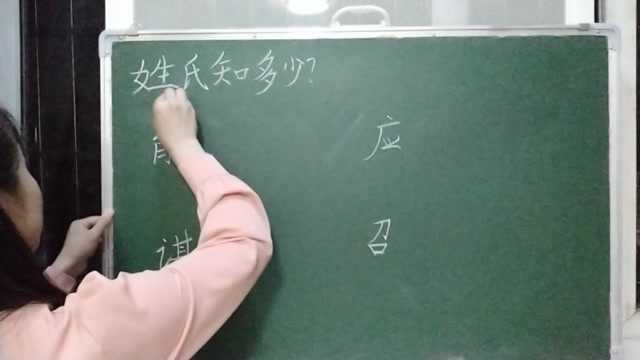 姓氏知多少?
应
谌 召